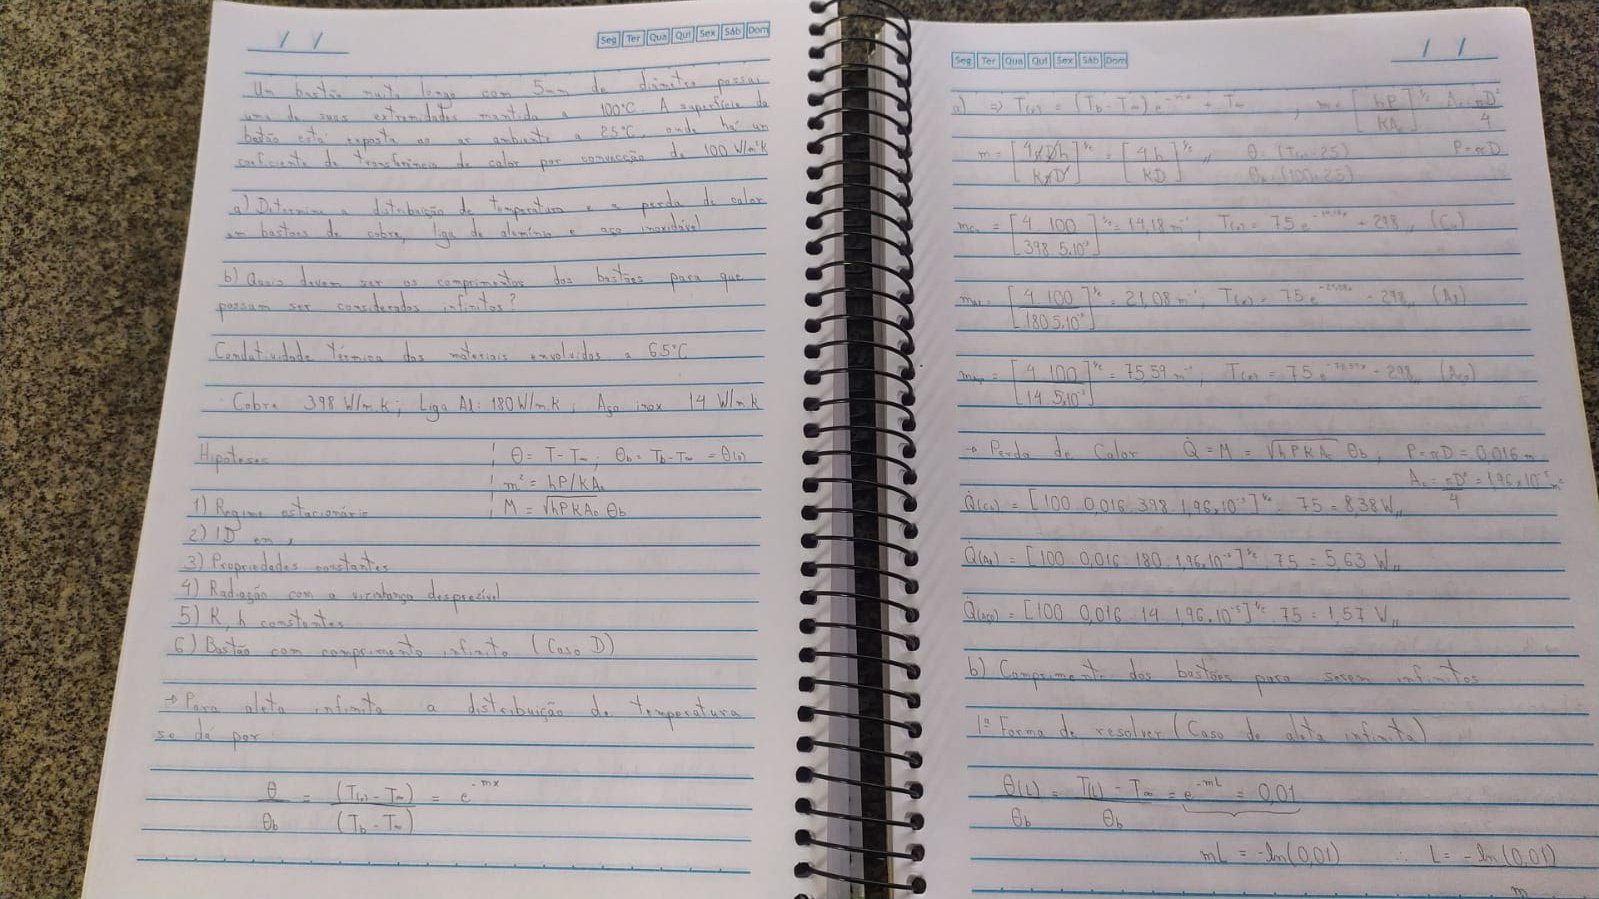 / /
Seg Ter Qua Qui Sex Sáb Dom
Um bastão muito longo com 5mm de diâmetro possui
uma de suas extremidades mantida a 100°C. A superfície do
bastão está exposta ao ar ambiente a 25°C, onde há um
coeficiente de transferência de calor por convecção de 100 W/m²K
a) Determine a distribuição de temperatura e a perda de calor
em bastões de cobre, liga de alumínio e aço inoxidável
b) Quais devem ser os comprimentos dos bastões para que
possam ser considerados infinitos?
Condutividade térmica dos materiais envolvidos a 65°C
Cobre 398 W/m.K; Liga Al: 180 W/m.K; Aço inox 14 W/m.K
Hipóteses
θ = T - T∞ ; θb = Tb - T∞ = θ(0)
m² = hP/kAc
1) Regime estacionário
M = √hPKAc θb
2) 1D em x
3) Propriedades constantes
4) Radiação com a vizinhança desprezível
5) K, h constantes
6) Bastão com comprimento infinito (Caso D)
→ Para aleta infinita a distribuição de temperatura
se dá por
θ/θb = (T(x) - T∞)/(Tb - T∞) = e^-mx
/ /
Seg Ter Qua Qui Sex Sáb Dom
a) ⇒ T(x) = (Tb - T∞) e^-mx + T∞ , m = [hP/KAc]^½ Ac = πD²/4
m = [4πDh/KπD²]^½ = [4h/KD]^½ ,, θ = (T(x) - 25) P = πD
θb = (100 - 25)
mcu = [4 100/398.5.10⁻³]^½ = 14,18 m⁻¹ , T(x) = 75 e^-14,18x + 298,, (Cu)
mAl = [4.100/180.5.10⁻³]^½ = 21,08 m⁻¹, T(x) = 75 e^-21,08x - 298,, (Al)
maço = [4 100/14.5.10⁻³]^½ = 75,59 m⁻¹, T(x) = 75 e^-75,59x - 298,, (Aço)
→ Perda de Calor Q̇ = M = √hPKAc θb , P = πD = 0,016 m
Ac = πD²/4 = 1,96 x 10⁻⁵ m²
Q̇(cu) = [100 . 0,016 . 398 . 1,96.10⁻⁵]^½ . 75 = 8,38 W,,
Q̇(Al) = [100 0,016 . 180 . 1,96.10⁻⁵]^½ . 75 = 5,63 W,,
Q̇(aço) = [100 0,016 . 14 1,96.10⁻⁵]^½ . 75 = 1,57 W,,
b) Comprimento dos bastões para serem infinitos
1ª Forma de resolver (Caso de aleta infinita)
θ(L)/θb = T(L) - T∞/θb = e^-mL = 0,01
mL = -ln(0,01) ∴ L = -ln(0,01)/m